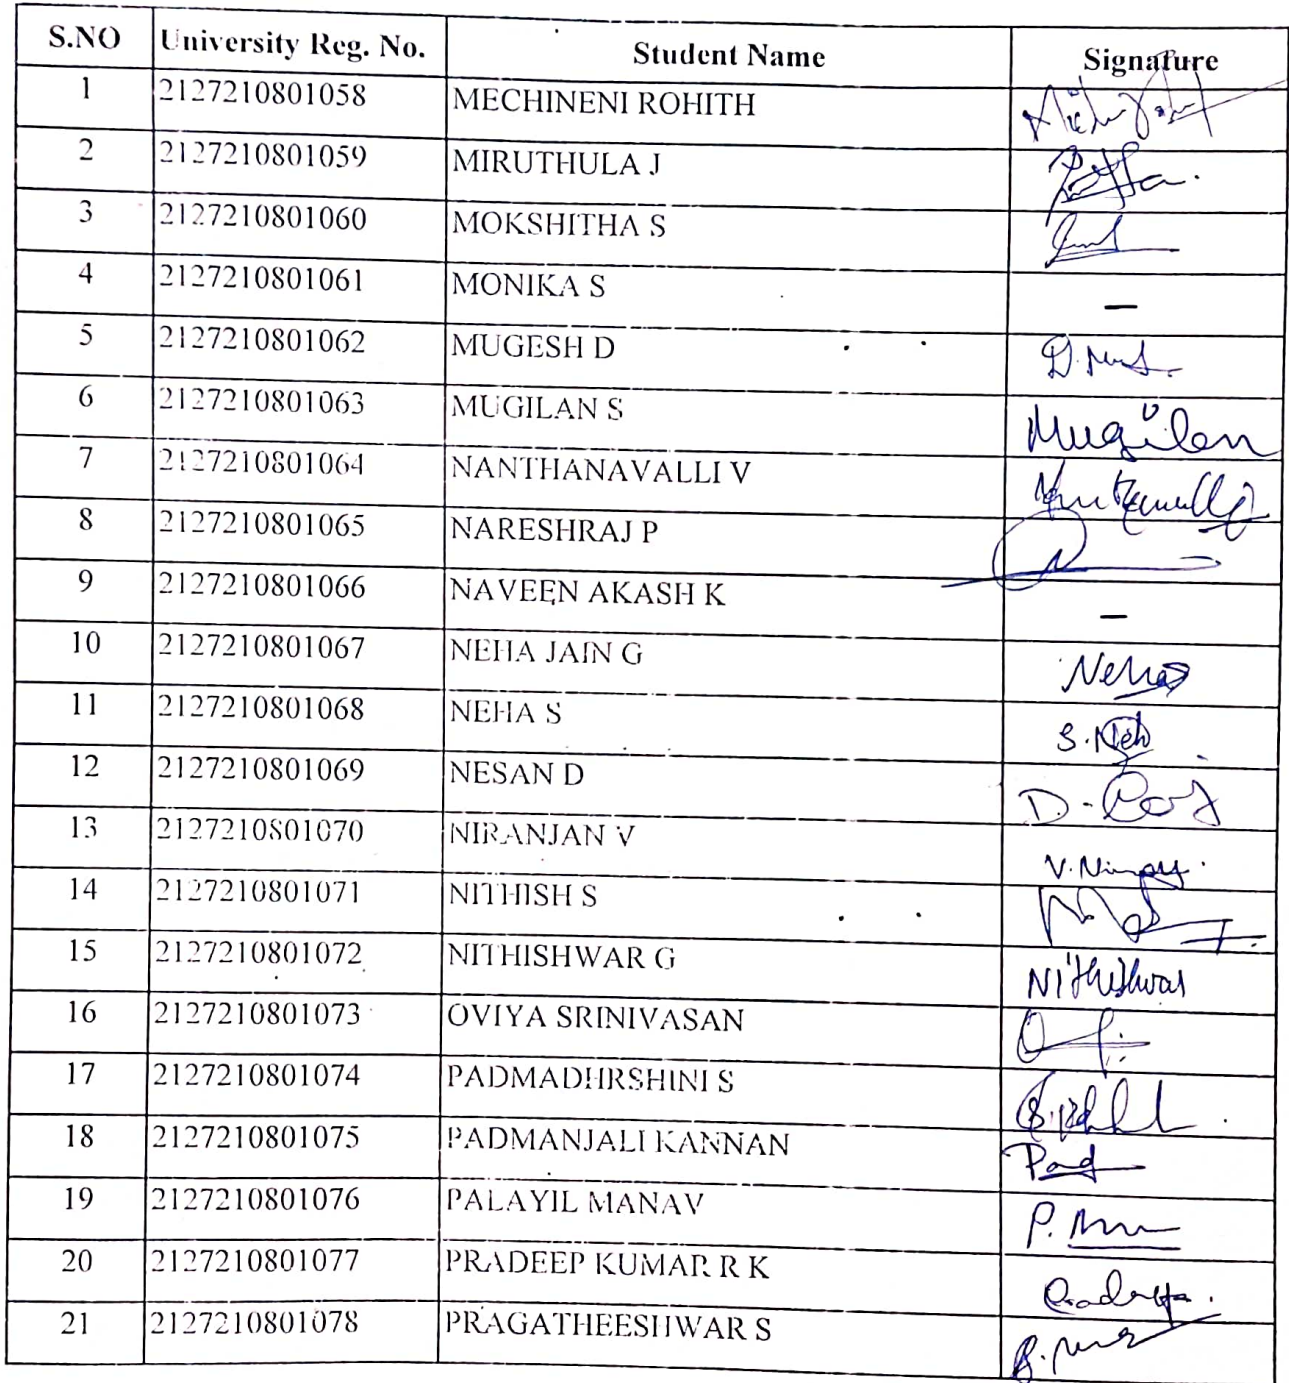 S.NO University Reg. No. Student Name Signature
1 2127210801058 MECHINENI ROHITH
2 2127210801059 MIRUTHULA J
3 2127210801060 MOKSHITHA S
4 2127210801061 MONIKA S –
5 2127210801062 MUGESH D
6 2127210801063 MUGILAN S Mugilan
7 2127210801064 NANTHANAVALLI V
8 2127210801065 NARESHRAJ P
9 2127210801066 NAVEEN AKASH K –
10 2127210801067 NEHA JAIN G Neha
11 2127210801068 NEHA S S.Neh
12 2127210801069 NESAN D
13 2127210801070 NIRANJAN V
14 2127210801071 NITHISH S
15 2127210801072 NITHISHWAR G Nithishwar
16 2127210801073 OVIYA SRINIVASAN
17 2127210801074 PADMADHRSHINI S
18 2127210801075 PADMANJALI KANNAN Pad
19 2127210801076 PALAYIL MANAV
20 2127210801077 PRADEEP KUMAR R K
21 2127210801078 PRAGATHEESHWAR S